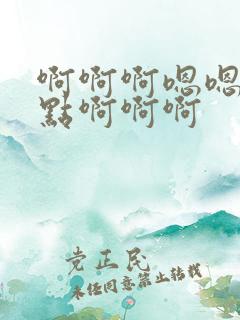 啊啊啊嗯嗯
點啊啊啊
党正民
未经同意禁止转载